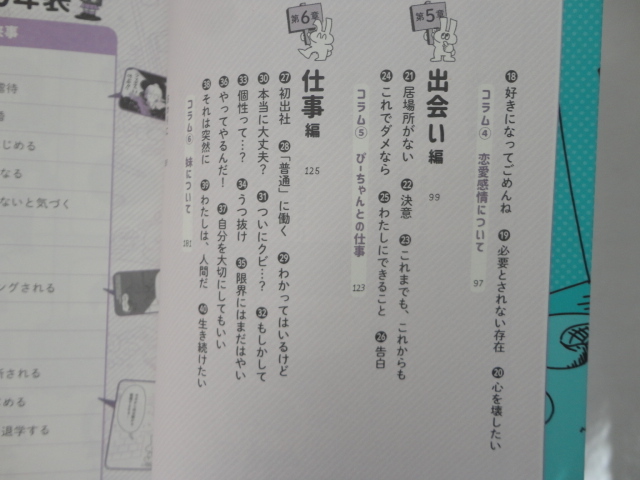 ⑱ 好きになってごめんね ⑲ 必要とされない存在 ⑳ 心を壊したい
コラム④ 恋愛感情について 97
第5章
出会い編 99
㉑ 居場所がない ㉒ 決意 ㉓ これまでも、これからも
㉔ これでダメなら ㉕ わたしにできること ㉖ 告白
コラム⑤ ぴーちゃんとの仕事 123
第6章
仕事編 125
㉗ 初出社 ㉘「普通」に働く ㉙ わかってはいるけど
㉚ 本当に大丈夫? ㉛ ついにクビ…? ㉜ もしかして
㉝ 個性って…? ㉞ うつ抜け ㉟ 限界にはまだはやい
㊱ やってやるんだ! ㊲ 自分を大切にしてもいい
㊳ それは突然に ㊴ わたしは、人間だ ㊵ 生き続けたい
コラム⑥ 妹について 181
年表
事
待
じめる
なる
ないと気づく
ングされる
される
める
退学する